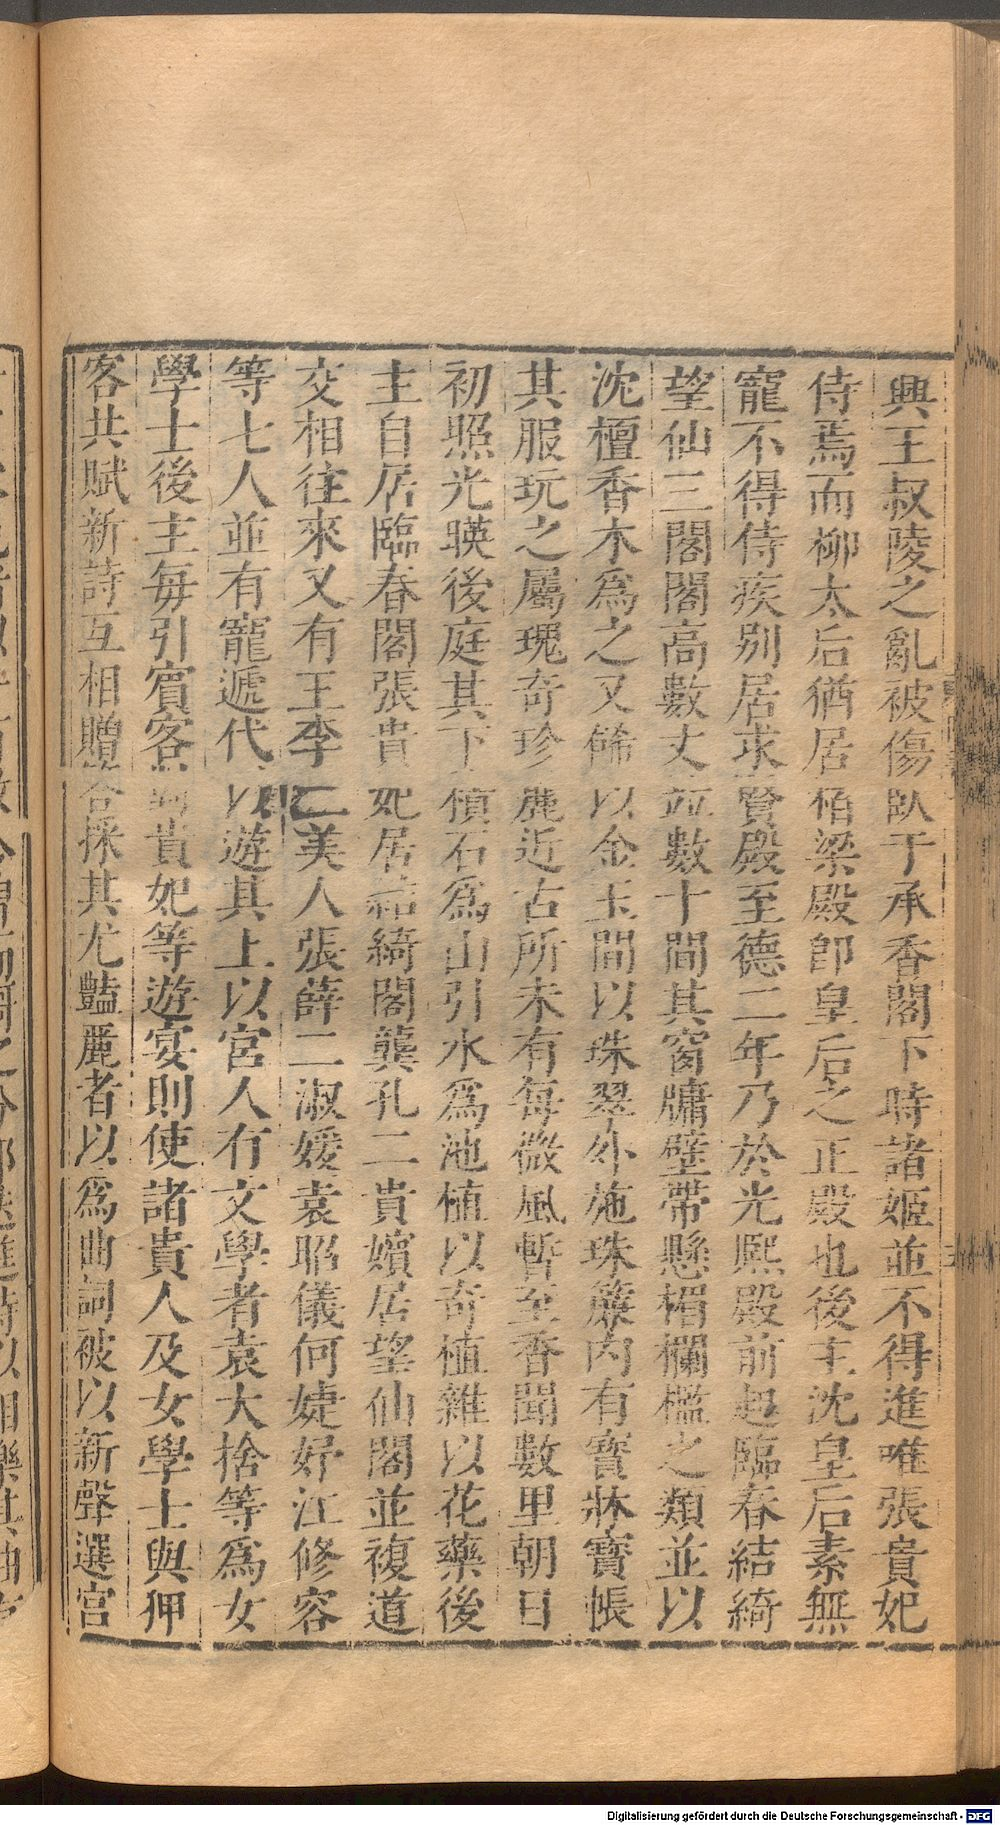 興王叔陵之亂被傷臥于承香閣下時諸姬並不得進唯張貴妃
侍焉而柳太后猶居栢梁殿卽皇后之正殿也後主沈皇后素無
寵不得侍疾别居求賢殿至德二年乃於光熈殿前起臨春結綺
望仙三閣閣高數丈並數十間其窗牗壁帶懸楣欄檻之類並以
沈檀香木爲之又餙以金玉間以珠翠外施珠簾内有寶牀寶帳
其服玩之屬瑰奇珍麗近古所未有每微風暫至香聞數里朝日
初照光暎後庭其下積石爲山引水爲池植以奇植雜以花藥後
主自居臨春閣張貴妃居結綺閣龔孔二貴嬪居望仙閣並複道
交相往來又有王李二美人張薛二淑媛袁昭儀何婕妤江修容
等七人並有寵遞代以遊其上以宮人有文學者袁大捨等爲女
學士後主每引賔客對貴妃等遊宴則使諸貴人及女學士與狎
客共賦新詩互相贈答採其尤豔麗者以爲曲詞被以新聲選宮
Digitalisierung gefördert durch die Deutsche Forschungsgemeinschaft - DFG